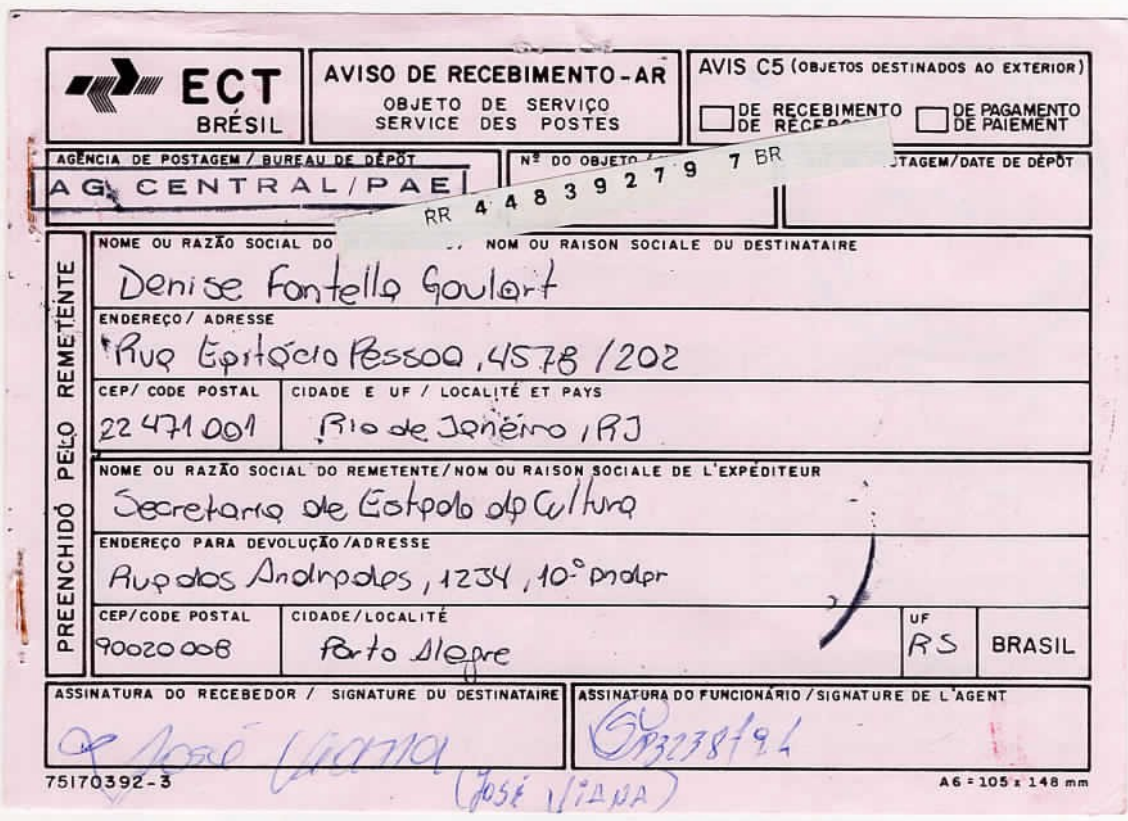 ECT
BRÉSIL
AVISO DE RECEBIMENTO-AR
OBJETO DE SERVIÇO
SERVICE DES POSTES
AVIS C5 (OBJETOS DESTINADOS AO EXTERIOR)
DE RECEBIMENTO
DE
DE PAGAMENTO
DE PAIEMENT
AGÊNCIA DE POSTAGEM / BUREAU DE DÉPÔT
AG. CENTRAL/PAE
Nº DO OBJETO /
RR 4 4 8 3 9 2 7 9 7 BR
TAGEM/DATE DE DÉPÔT
PREENCHIDO PELO REMETENTE
NOME OU RAZÃO SOCIAL DO / NOM OU RAISON SOCIALE DU DESTINATAIRE
Denise Fontella Goulart
ENDEREÇO / ADRESSE
Rua Epitácio Pessoa, 4578 / 202
CEP/ CODE POSTAL
22 471 001
CIDADE E UF / LOCALITÉ ET PAYS
Rio de Janeiro, RJ
NOME OU RAZÃO SOCIAL DO REMETENTE/NOM OU RAISON SOCIALE DE L'EXPÉDITEUR
Secretaria de Estado da Cultura
ENDEREÇO PARA DEVOLUÇÃO/ADRESSE
Rua dos Andradas, 1234, 10º andar
CEP/CODE POSTAL
90020 008
CIDADE/LOCALITÉ
Porto Alegre
UF
RS
BRASIL
ASSINATURA DO RECEBEDOR / SIGNATURE DU DESTINATAIRE
José Viana
(JOSÉ VIANA)
ASSINATURA DO FUNCIONÁRIO / SIGNATURE DE L'AGENT
75170392-3
A6 = 105 x 148 mm